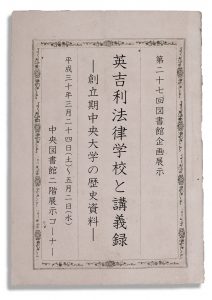 第二十七回図書館企画展示
英吉利法律学校と講義録
―創立期中央大学の歴史資料―
平成三十年三月二十四日(土)～五月二日(水)
中央図書館二階展示コーナー